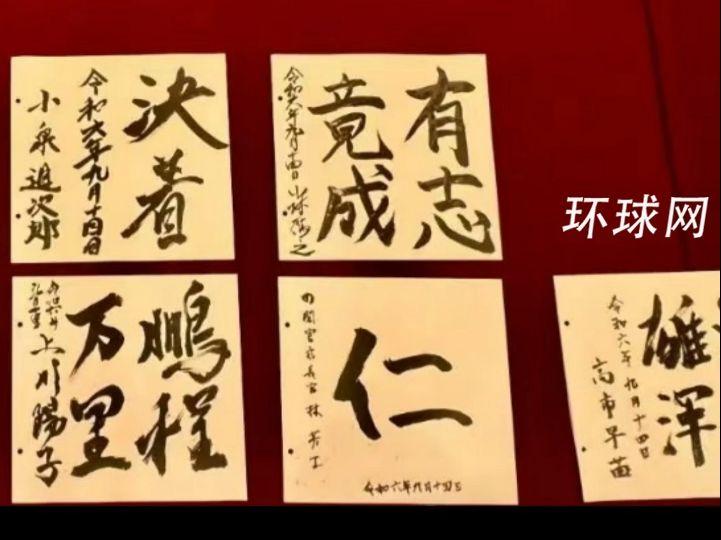 決着
令和六年九月十四日
小泉進次郎
有志
竟成
令和六年九月十四日 小林鷹之
环球网
鵬程
万里
上川陽子
仁
内閣官房長官 林芳正
令和六年九月十四日
雄渾
令和六年九月十四日
高市早苗